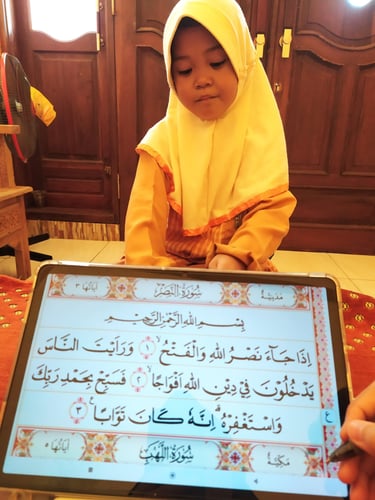 اٰيَاتُهَا ٣ سُوْرَةُ النَّصْرِ مَدَنِيَّةٌ
بِسْمِ اللّٰهِ الرَّحْمٰنِ الرَّحِيْمِ
اِذَا جَآءَ نَصْرُ اللّٰهِ وَالْفَتْحُ ۙ ١ وَرَاَيْتَ النَّاسَ
يَدْخُلُوْنَ فِيْ دِيْنِ اللّٰهِ اَفْوَاجًا ۙ ٢ فَسَبِّحْ بِحَمْدِ رَبِّكَ
وَاسْتَغْفِرْهُ ۗ اِنَّهٗ كَانَ تَوَّابًا ࣖ ٣
ع
اٰيَاتُهَا ٥ سُوْرَةُ اللَّهَبِ مَكِّيَّةٌ